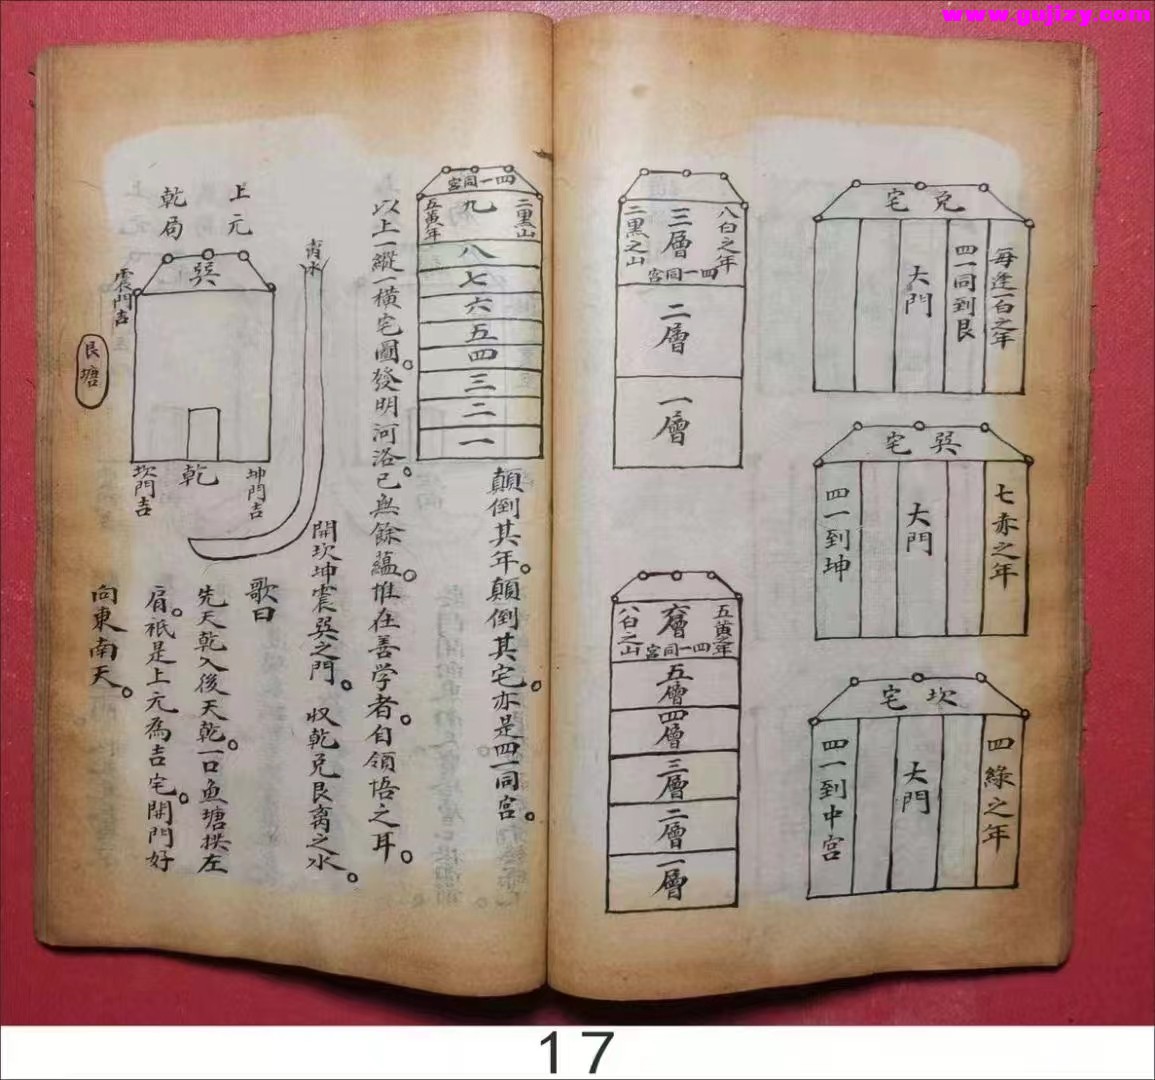 www.gujizy.com
兌宅
每逢一白之年
四一同到艮
大門
巽宅
七赤之年
大門
四一到坤
坎宅
四綠之年
大門
四一到中宮
八白之年
三層
四一同宮
二黑之山
二層
一層
五黃之年
六層
四一同宮
八白之山
五層
四層
三層
二層
一層
四一同宮
二黑山
九
五黃年
八
七
六
五
四
三
二
一
顛倒其年。顛倒其宅。亦是四一同宮。
以上一縱一橫宅圖。發明河洛。已無餘蘊。惟在善学者。自領悟之耳。
上元
乾局
巽
震門吉
艮塘
坎門吉
乾
坤門吉
開坎坤震巽之門。収乾兌艮离之水。
歌曰
先天乾入後天乾。一口魚塘拱左
肩。祇是上元為吉宅。開門好
向東南天。
17